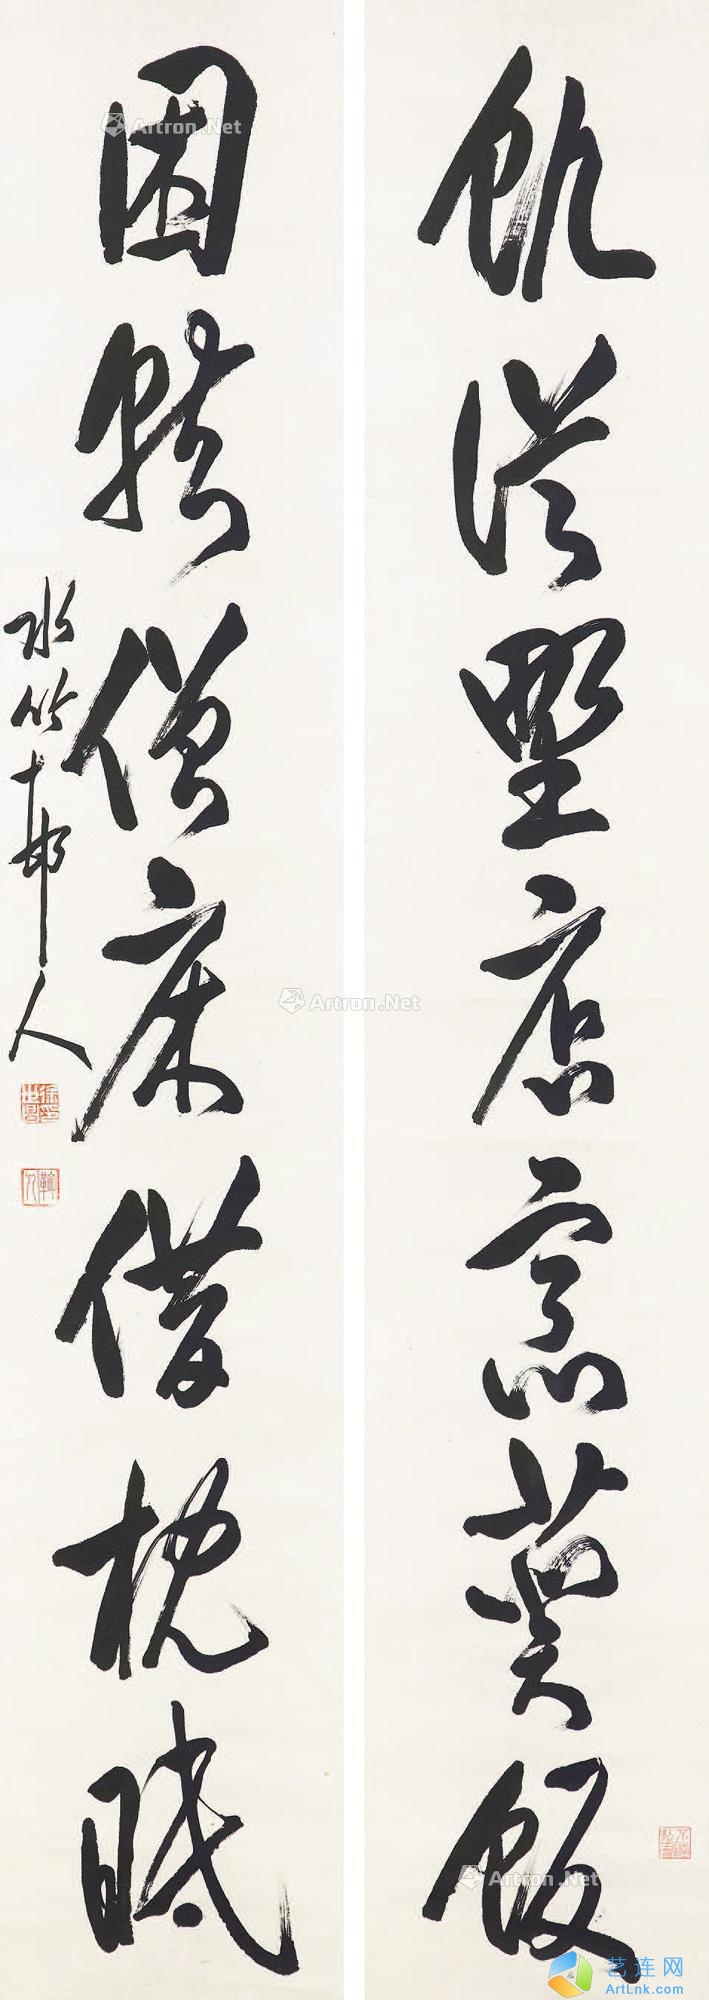 飢從野店烹葵飯
困就僧床借枕眠
水竹邨人
徐世昌印
鞠人
Artron.Net
Artron.Net
Artron.Net
艺连网
ArtLnk.com